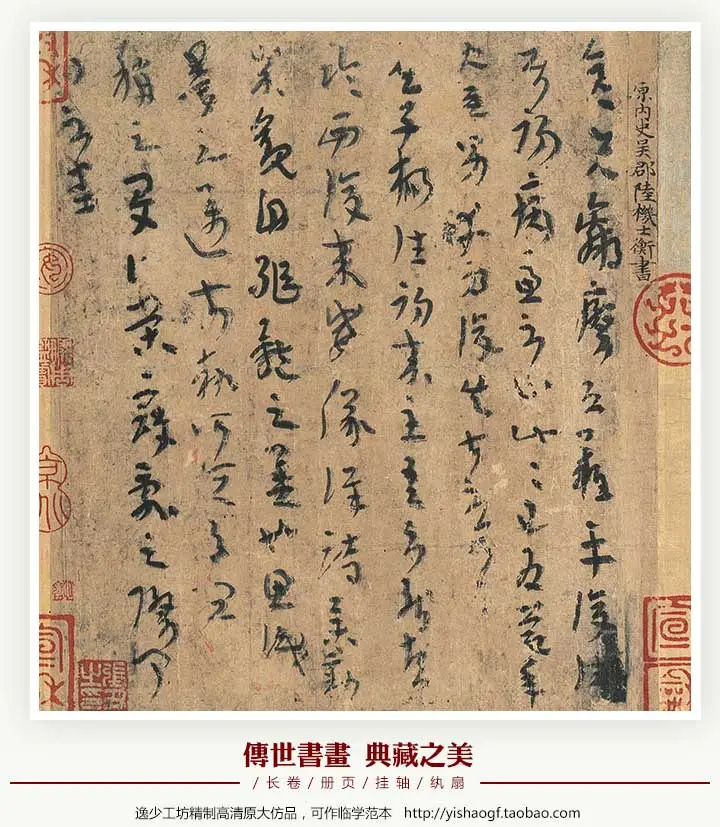 原內史吳郡陸機士衡書
彦先羸瘵恐難平復往屬
初病慮不止此此已為慶承
使唯男幸為復失前憂耳
吳子楊往初來主吾不能盡
臨西復來威儀詳跱舉動
成觀自軀體之美也思識
量之邁前執所恒有宜
稱之夏伯榮寇亂之際聞
問不悉
傳世書畫 典藏之美
/长卷/册页/挂轴/纨扇
逸少工坊精制高清原大仿品，可作临学范本 http://yishaogf.taobao.com